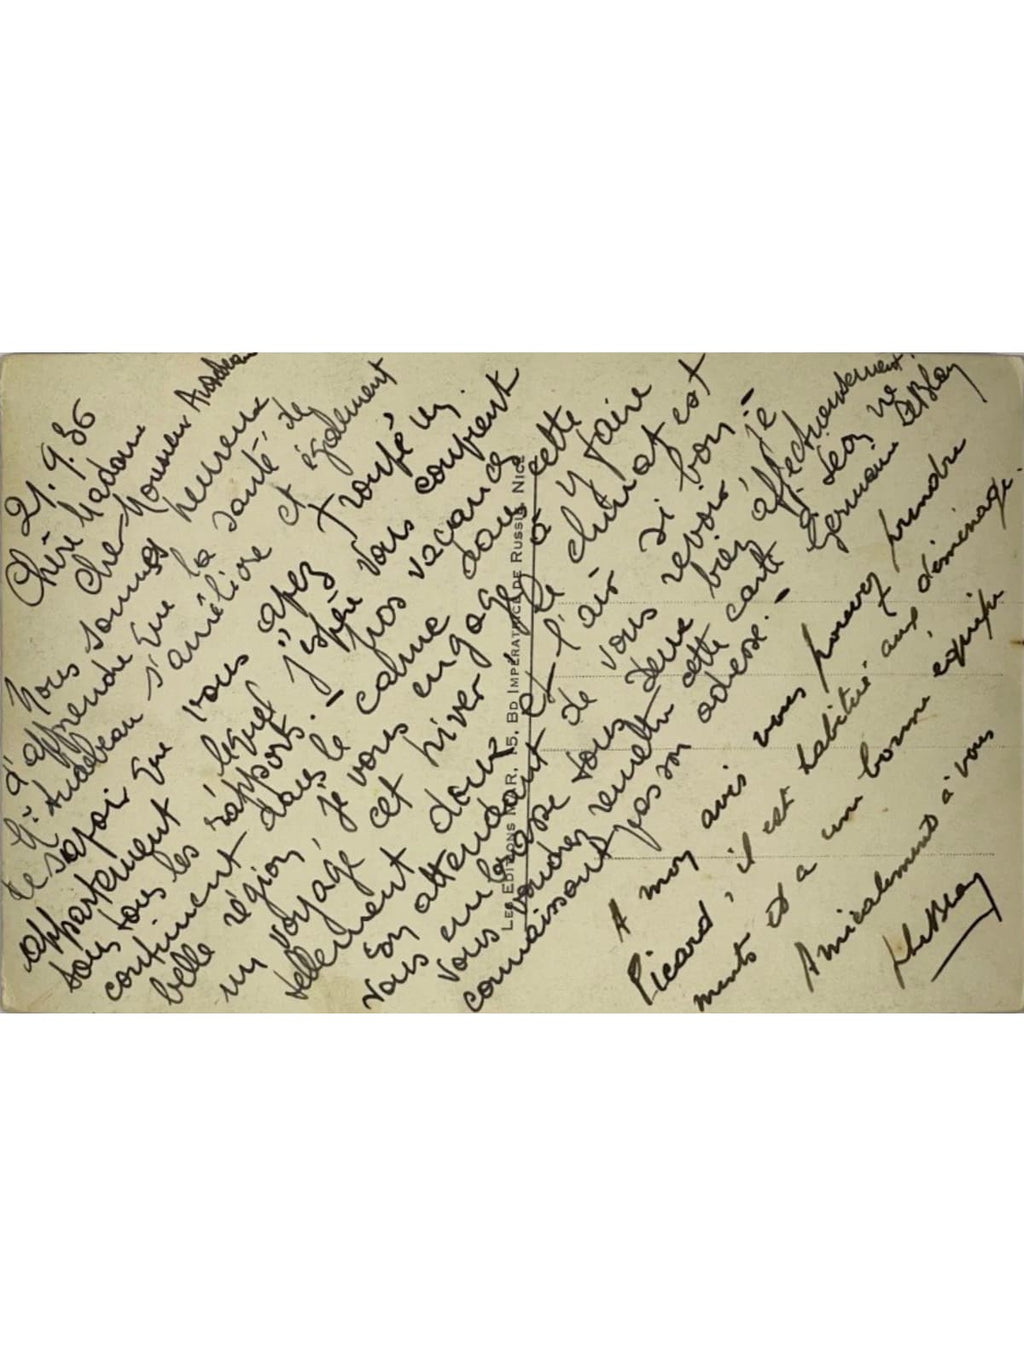 21.9.36
Chère Madame
Cher Monsieur Audebeau
Nous sommes heureux
d'apprendre que la santé de
Mr Audebeau s'améliore et également
de savoir que vous avez trouvé un
appartement lequel j'espère vous convient
sous tous les rapports. — Vos vacances
continuent dans le calme dans cette
belle région, je vous engage à y faire
un voyage cet hiver le climat est
tellement doux et l'air si bon —
En attendant de vous revoir, je
vous embrasse tous deux bien affectueusement.
Vous voudrez remettre cette carte à Léon ne
connaissant pas son adresse. — Germaine LeBlay
A mon avis vous pouvez prendre
Picard, il est habitué aux déménage-
ments et a une bonne équipe
Amicalement à vous
LeBlay
LES EDITIONS MAR, 15, BD IMPÉRATRICE DE RUSSIE, NICE